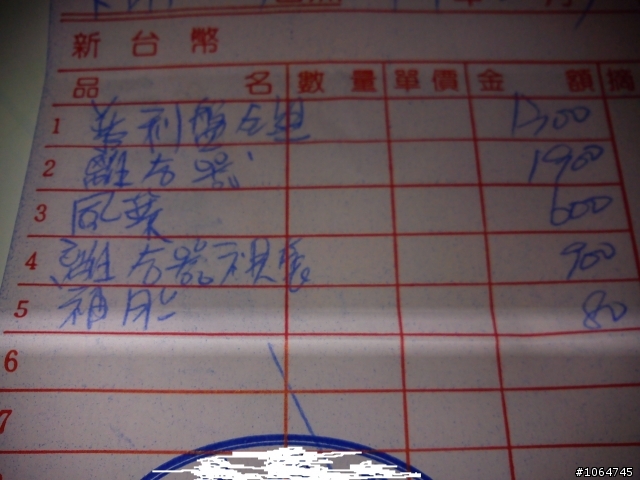 新台幣
品名 數量 單價 金額 摘
1 普利盤組 1300
2 離合器 1900
3 風葉 600
4 離合器 900
5 補胎 80
6
7
#1064745